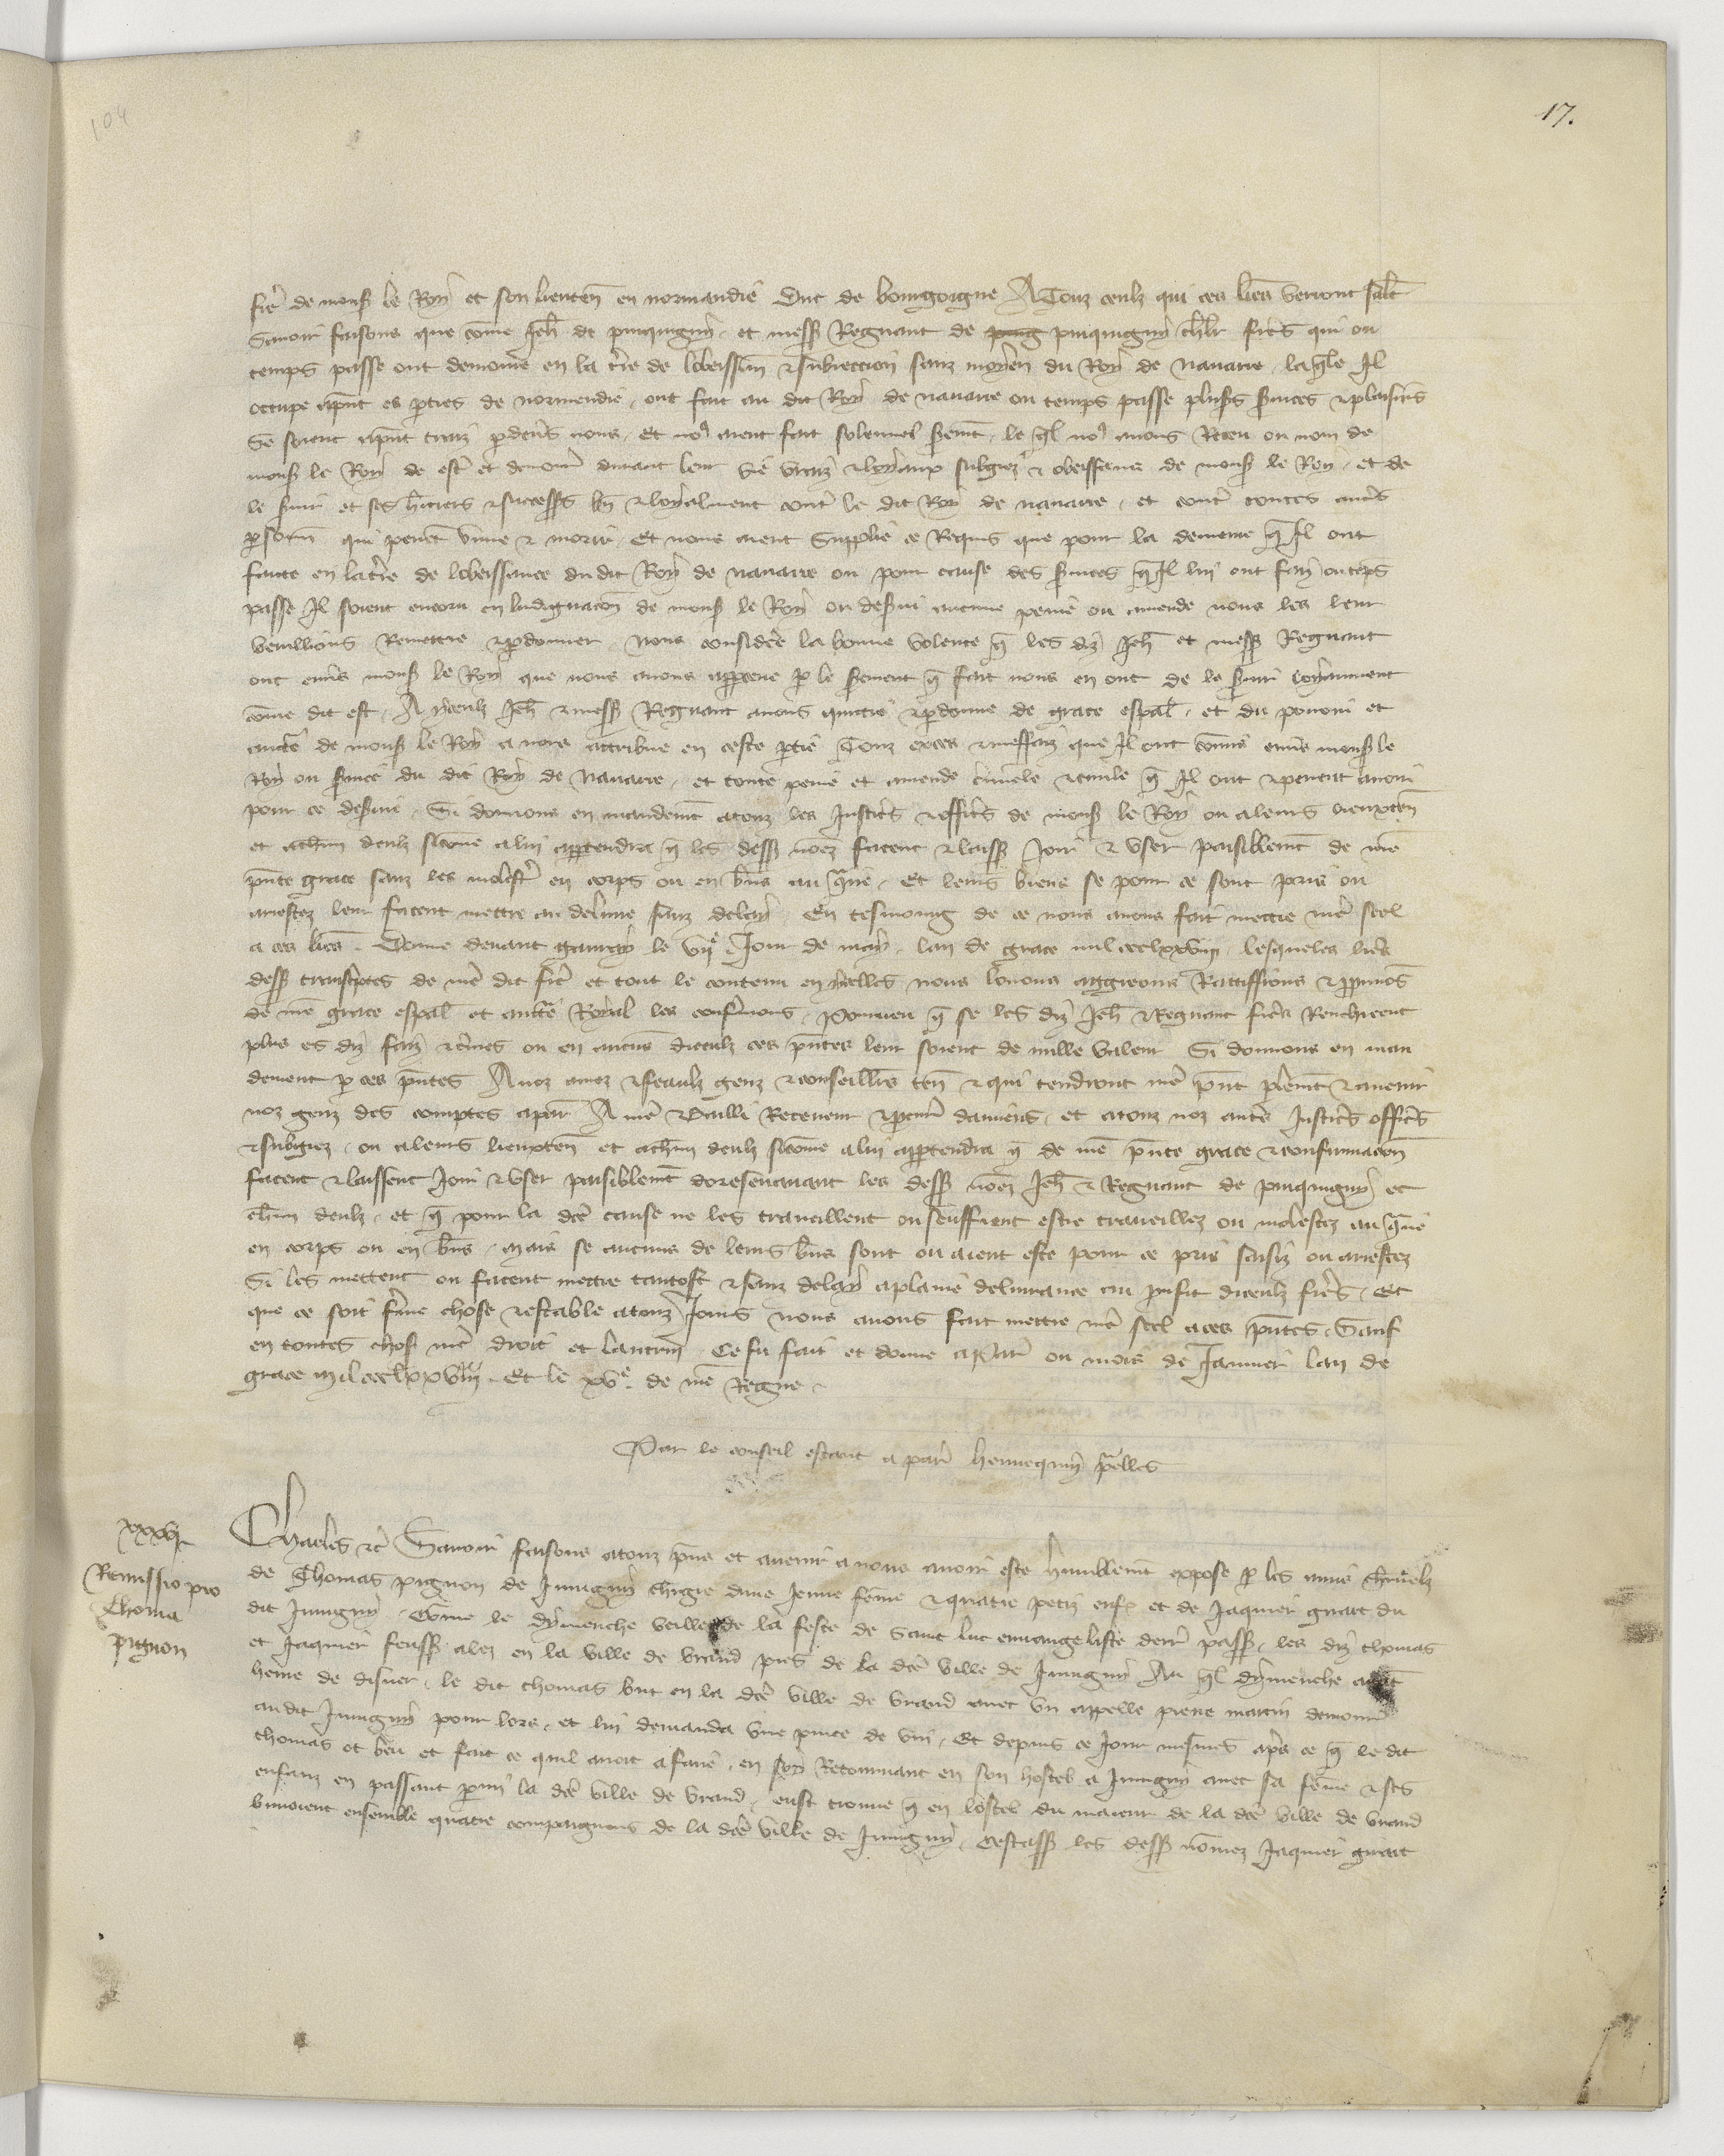 104
17.
frere de mons̃ le Roy et son lieuten̄ en normandie Duc de bourgoigne A Touz ceulz qui ces lr̃es verront salut
Savoir faisons que cōme Jeh̃ de pinquigny et mess̃ Regnaut de pinquigny ch̃lr freres qui ou
temps passe ont demoure en la t̃re de lobeissan̄ & subieccion sanz moyen du Roy de Navarre, laq̃le Il
occupe ap̃nt es p̃ties de normendie, ont fait au dit Roy de navarre ou temps passe plus̃s s̃vices & plaisirs
Se soient ap̃nt traiz p̃ devers nous, Et no9 aient fait solennel s̃emt̃, le q̃l no9 avons Receu ou nom de
mons̃ le Roy de estre et demourer durant leur vie vraiz & loyaux subgiez & obeissans de mons̃ le Roy, et de
le s̃vir et ses h̃itiers & successs̃ bn̄ & loyalment contre le dit Roy de navarre, et contre toutes autres
p̃sonn̄ qui peuent vivre & morir, Et nous aient Supplie et Requis que pour la demeure q̃ Il ont
faite en la t̃re de lobeissance du dit Roy de navarre ou pour cause des s̃vices q̃ Il lui ont faiz ou tẽps
passe Il soient encoru en lindignacōn de mons̃ le Roy ou desservi aucune peine ou amende nous les leur
veuillions Remettre & p̃donner, Nous considere la bonne volente q̃ les diz Jeh̃ et mess̃ Regnaut
ont envers mons̃ le Roy que nous avons app̃ceue p̃ le s̃ement q̃ fait nous en ont de le s̃vir loyaument
cōme dit est, A yceulz Jeh̃ & mess̃ Regnaut avons quittie & p̃donne de grace esp̃al, et du povoir et
auctte de mons̃ le Roy a nous attribue en ceste p̃tie Touz exces & meffaiz que Il ont cōmis envers mons̃ le
Roy ou s̃vice du dit Roy de Navarre, et toute peine et amende crimin̄ele & civile q̃ Il ont & peuent avoir
pour ce desservie, Si donnons en mandemt̃ a touz les Justic̃s & offic̃s de mons̃ le Roy ou a leurs lieuxten̄
et a chūn deulz sicōme a lui app̃tendra q̃ les dess̃ nōez facent & laiss̃ Joir & user paisiblemt̃ de n̄re
p̃nte grace sanz les molest̃ en corps ou en biens au q̃ne, Et leurs biens se pour ce sont pris ou
arrestez leur facent mettre au delivre sanz delay, En tesmoing de ce nous avons fait mettre n̄re scel
a ces lr̃es, Donne devant gavray le vije Jour de may, lan de grace mil ccclxxviij, lesqueles lr̃es
dess̃ transc̃ptes de n̄re dit frere et tout le contenu en ycelles nous louons aggreons Ratiffions & app̃vons
de n̄re grace esp̃al et auctte Royal les confermons, Pourveu q̃ se les diz Jeh̃ & Regnaut freres Rencheent
plus es diz faiz & crimes ou en aucuns diceulz ces p̃ntes leur soient de nulle valeur Si donnons en man
dement p̃ ces p̃ntes A noz amez & feaulz genz & conseill̃s ten̄ & qui tendront n̄re p̃nt p̃lemt̃ & avenir
noz genz des comptes a par̃ A n̄re Bailli Receveur & p̃cur̃ damiens, et a touz noz autres Justic̃s offic̃s
& subgiez, ou a leurs lieuxten̄ et a chūn deulz sicōme a lui app̃tendra q̃ de n̄re p̃nte grace & confirmacōn
facent & laissent Joir & user paisiblemt̃ doresenavant les dess̃ nōez Jeh̃ & Regnaut de pinquigny et
chūn deulz, et q̃ pour la dc̃e cause ne les traveillent ou seuffrent estre traveillez ou molestez au q̃ne
en corps ou en biens, Mais se aucuns de leurs biens sont ou aient este pour ce pris saisiz ou arrestez
Si les mettent ou facent mettre tantost & sanz delay a plaine delivrance au p̃ufit diceulz freres, Et
que ce soit ferme chose & estable a touz Jours nous avons fait mettre n̄re scel a ces p̃ntes, Sauf
en toutes chos̃ n̄re droit et lautruy, Ce fu fait et donne a Par̃ ou mois de Janvier lan de
grace Mil ccclxxviij, Et le xve de n̄re Regne,
Par le conseil estant a par̃ hennequin p̃elles
xxxvj
Remissio pro
Thoma
pignon
Charles &c̃ Savoir faisons a touz p̃ns et avenir a nous avoir este humblemt̃ expose p̃ les amis charnelz
de Thomas pignon de Juvigny chargie dune Jeune fẽme & quatre petiz enf̃ et de Jaquier giart du
dit Juvigny, Cōme le dymenche veille de la feste de saint luc euvangeliste derr̃ pass̃, les diz thomas
et Jaquier feuss̃ alez en la ville de Vraud pres de la dc̃e ville de Juvigny Au q̃l dymenche avt̃
heure de disner, le dit thomas but en la dc̃e ville de Vraud avec un appelle pierre martin demour̃
au dit Juvigny pour lors, et lui demanda une pinte de vin, Et depuis ce Jour mesmes apres ce q̃ le dit
thomas ot beu et fait ce quil avoit a faire, en soy Retournant en son hostel a Juvigny avec sa fẽme & ses
enfanz en passant p̃mi la dc̃e ville de Vraud, eust trouve q̃ en lostel du maieur de la dc̃e ville de Vraud
buvoient ensemble quatre compaignons de la dc̃e ville de Juvigny, Cestass̃ les dess̃ nōmez Jaquier giart